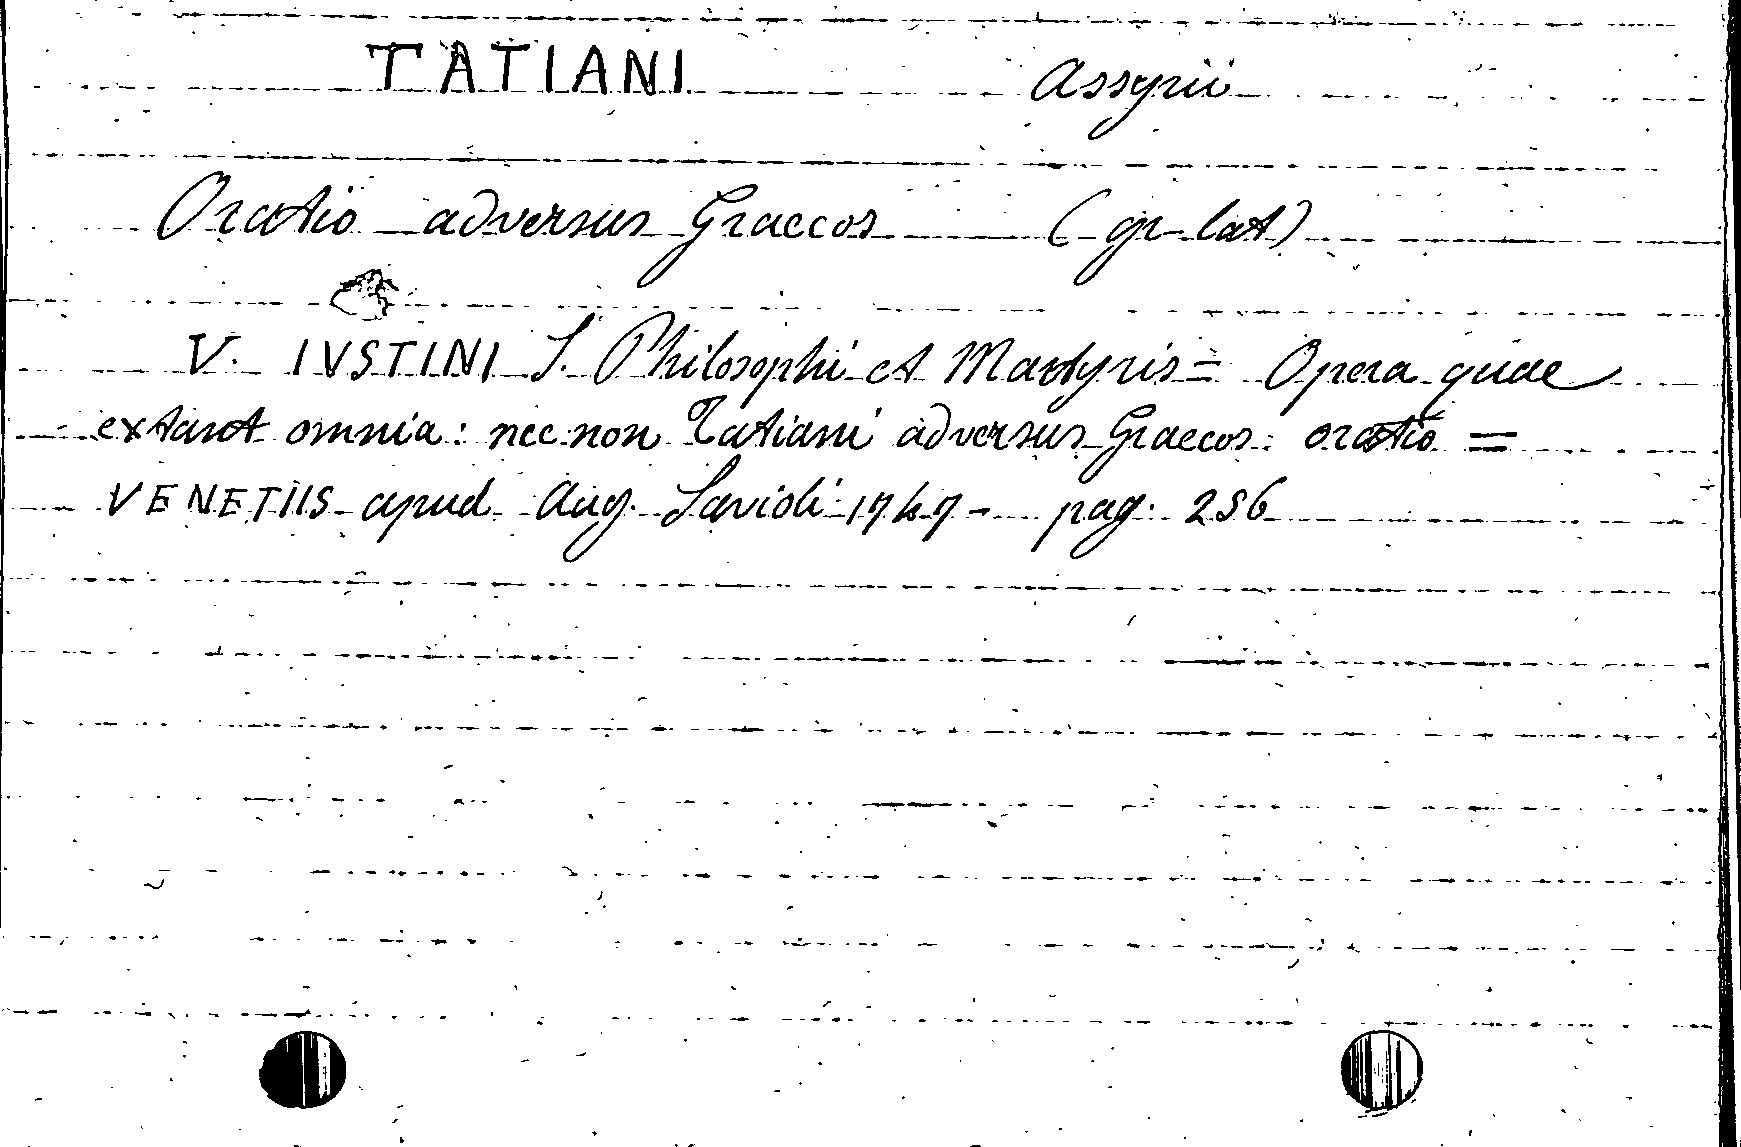 TATIANI Assyrii
Oratio adversus Graecos (gr-lat)
V. IVSTINI S. Philosophi et Martyris = Opera quae
extant omnia: nec non Tatiani adversus Graecos: oratio =
VENETIIS apud Aug. Savioli 1747 - pag. 256